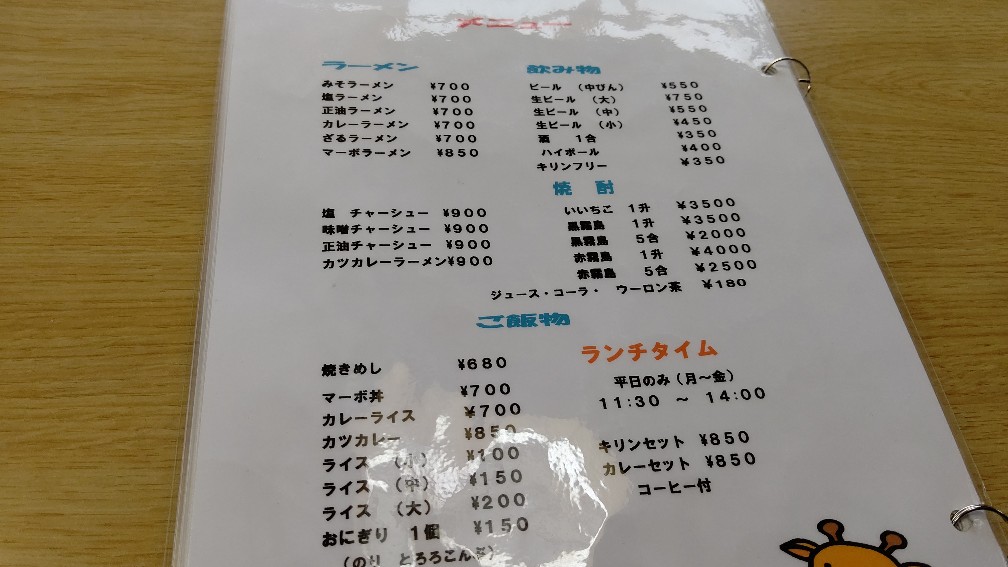 メニュー
ラーメン
みそラーメン ¥700
塩ラーメン ¥700
正油ラーメン ¥700
カレーラーメン ¥700
ざるラーメン ¥700
マーボラーメン ¥850
塩 チャーシュー ¥900
味噌チャーシュー ¥900
正油チャーシュー ¥900
カツカレーラーメン¥900
飲み物
ビール (中びん) ¥550
生ビール (大) ¥750
生ビール (中) ¥550
生ビール (小) ¥450
酒 1合 ¥350
ハイボール ¥400
キリンフリー ¥350
焼 酎
いいちこ 1升 ¥3500
黒霧島 1升 ¥3500
黒霧島 5合 ¥2000
赤霧島 1升 ¥4000
赤霧島 5合 ¥2500
ジュース・コーラ・ ウーロン茶 ¥180
ご飯物
焼きめし ¥680
マーボ丼 ¥700
カレーライス ¥700
カツカレー ¥850
ライス (小) ¥100
ライス (中) ¥150
ライス (大) ¥200
おにぎり 1個 ¥150
(のり とろろこんぶ)
ランチタイム
平日のみ(月～金)
11:30 ～ 14:00
キリンセット ¥850
カレーセット ¥850
コーヒー付